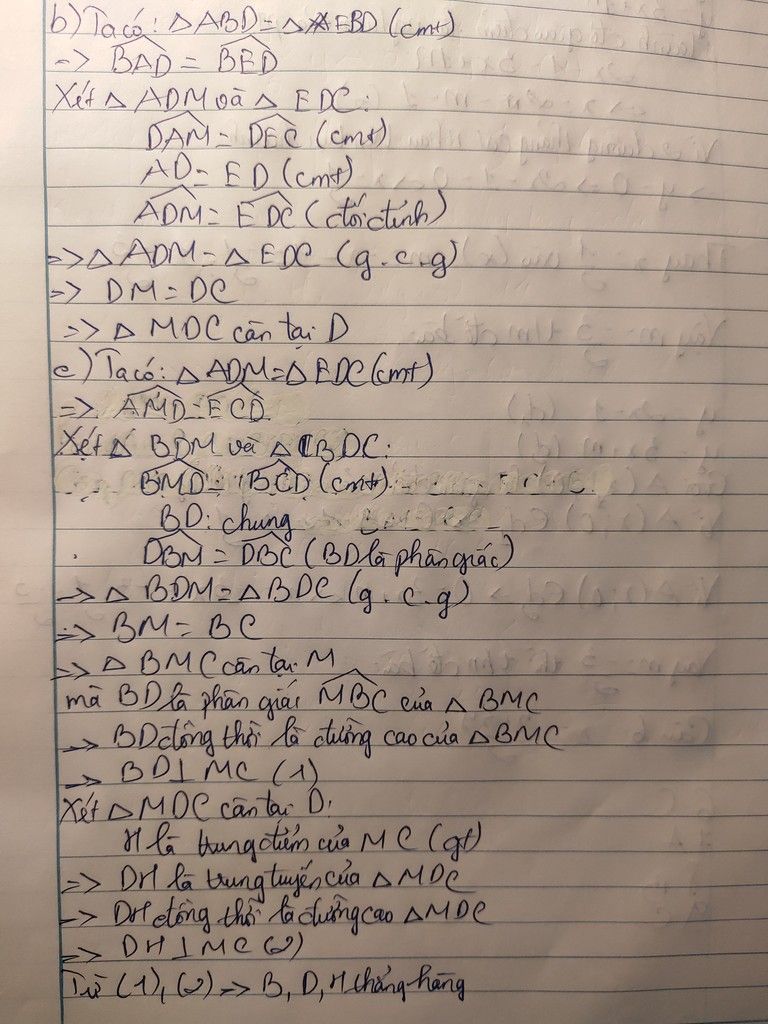 b) Ta có: △ ABD = △ EBD (cmt)
=> BAD = BED
Xét △ ADM và △ EDC:
DAM = DEC (cmt)
AD = ED (cmt)
ADM = EDC (đối đỉnh)
=> △ ADM = △ EDC (g.c.g)
=> DM = DC
=> △ MDC cân tại D
c) Ta có: △ ADM = △ EDC (cmt)
=> AMD = ECD
Xét △ BDM và △ BDC:
BMD = BCD (cmt)
BD: chung
DBM = DBC (BD là phân giác)
=> △ BDM = △ BDC (g.c.g)
=> BM = BC
=> △ BMC cân tại M
mà BD là phân giác MBC của △ BMC
=> BD đồng thời là đường cao của △ BMC
=> BD ⊥ MC (1)
Xét △ MDC cân tại D:
H là trung điểm của MC (gt)
=> DH là trung tuyến của △ MDC
=> DH đồng thời là đường cao △ MDC
=> DH ⊥ MC (2)
Từ (1), (2) => B, D, H thẳng hàng